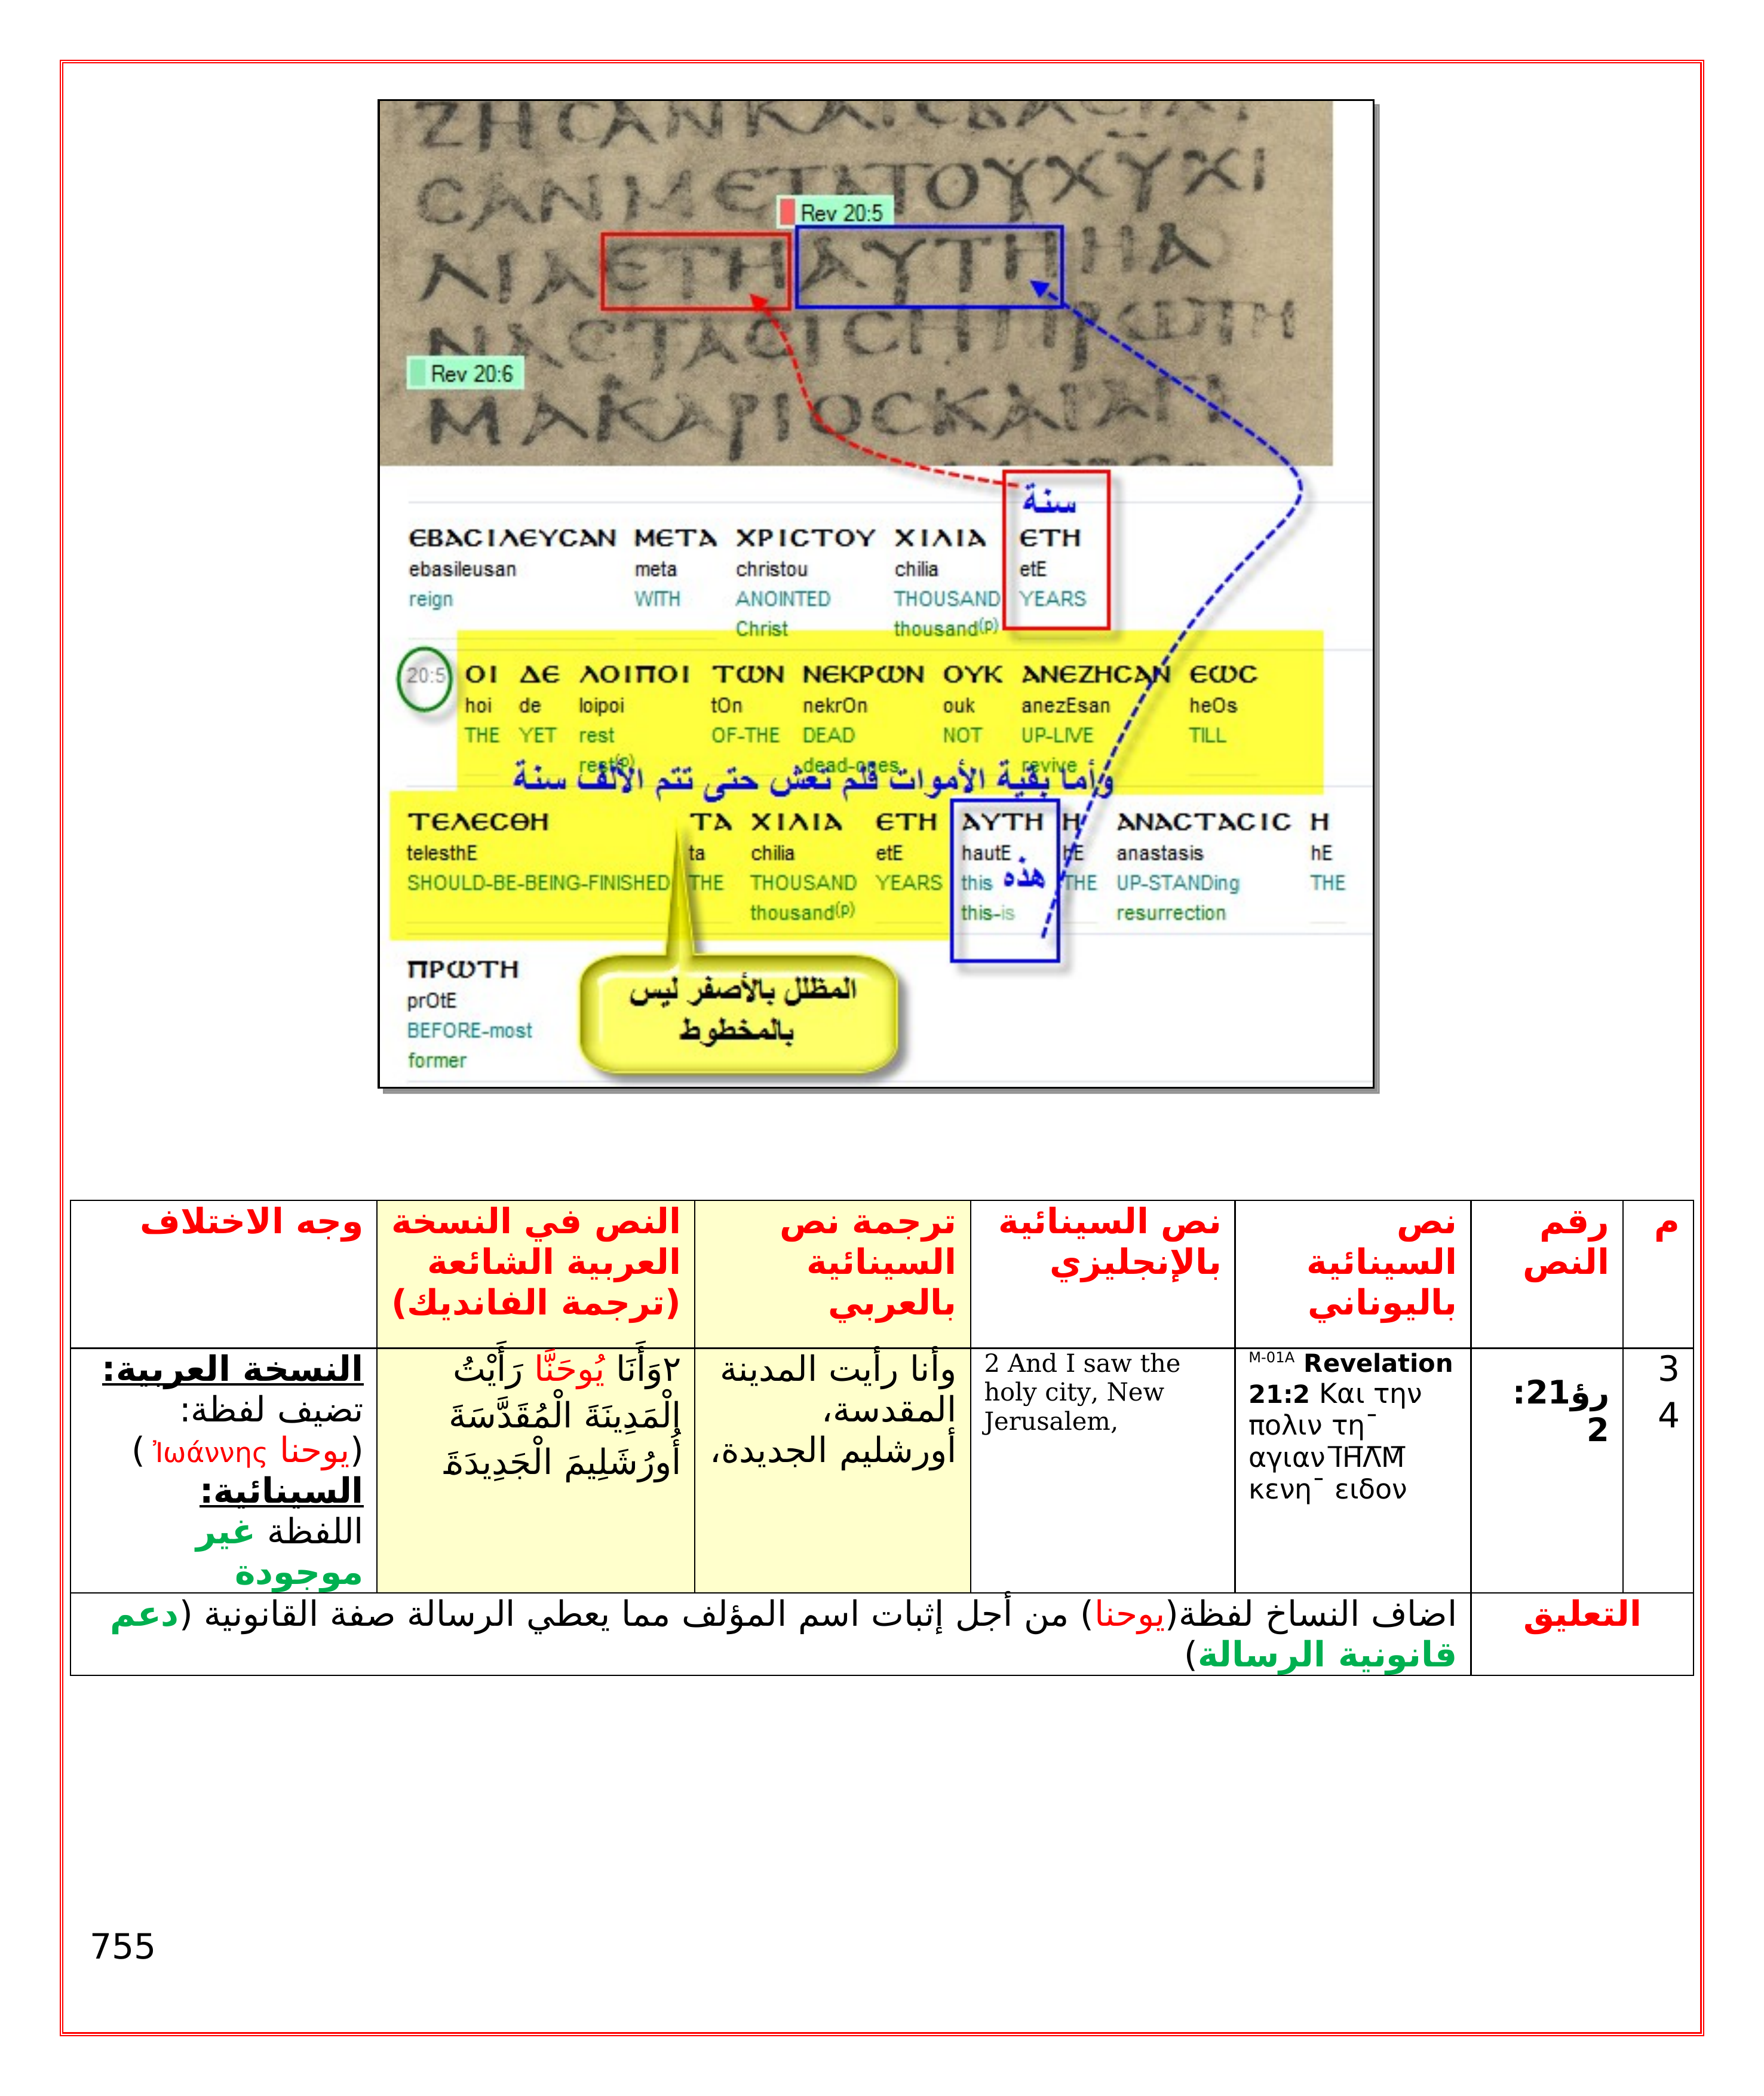 ΖΗCΑΝΚΑΙЄΒΑCΙΛΙ
CΑΝΜЄΤΑΤΟΥΧΥΧΙ
Rev 20:5
ΛΙΑЄΤΗΑΥΤΗΗΑ
ΝΑCΤΑCΙCΗΠΡωΤΗ
Rev 20:6
ΜΑΚΑΡΙΟCΚΑΙΑΓΙ
سنة
ЄΒΑCΙΛЄΥCΑΝ ΜЄΤΑ ΧΡΙCΤΟΥ ΧΙΛΙΑ ЄΤΗ
ebasileusan meta christou chilia etE
reign WITH ANOINTED THOUSAND YEARS
Christ thousand(p)
20:5 ΟΙ ΔЄ ΛΟΙΠΟΙ ΤωΝ ΝЄΚΡωΝ ΟΥΚ ΑΝЄΖΗCΑΝ ЄωC
hoi de loipoi tOn nekrOn ouk anezEsan heOs
THE YET rest OF-THE DEAD NOT UP-LIVE TILL
rest(p) dead-ones revive
وأما بقية الأموات فلم تعش حتى تتم الألف سنة
ΤЄΛЄCΘΗ ΤΑ ΧΙΛΙΑ ЄΤΗ ΑΥΤΗ Η ΑΝΑCΤΑCΙC Η
telesthE ta chilia etE hautE hE anastasis hE
SHOULD-BE-BEING-FINISHED THE THOUSAND YEARS this هذه THE UP-STANDing THE
thousand(p) this-is resurrection
ΠΡωΤΗ
prOtE
BEFORE-most
former
المظلل بالأصفر ليس
بالمخطوط
م
رقم
النص
نص
السينائية
باليوناني
نص السينائية
بالإنجليزي
ترجمة نص
السينائية
بالعربي
النص في النسخة
العربية الشائعة
(ترجمة الفانديك)
وجه الاختلاف
3
4
رؤ21:
2
M-01A Revelation
21:2 Και την
πολιν τη¯
αγιαν ΙΗΛΜ
κενη¯ ειδον
2 And I saw the
holy city, New
Jerusalem,
وأنا رأيت المدينة
المقدسة،
أورشليم الجديدة،
٢وَأَنَا يُوحَنَّا رَأَيْتُ
الْمَدِينَةَ الْمُقَدَّسَةَ
أُورُشَلِيمَ الْجَدِيدَةَ
النسخة العربية:
تضيف لفظة:
(يوحنا Ἰωάννης )
السينائية:
اللفظة غير
موجودة
التعليق
اضاف النساخ لفظة(يوحنا) من أجل إثبات اسم المؤلف مما يعطي الرسالة صفة القانونية (دعم
قانونية الرسالة)
755